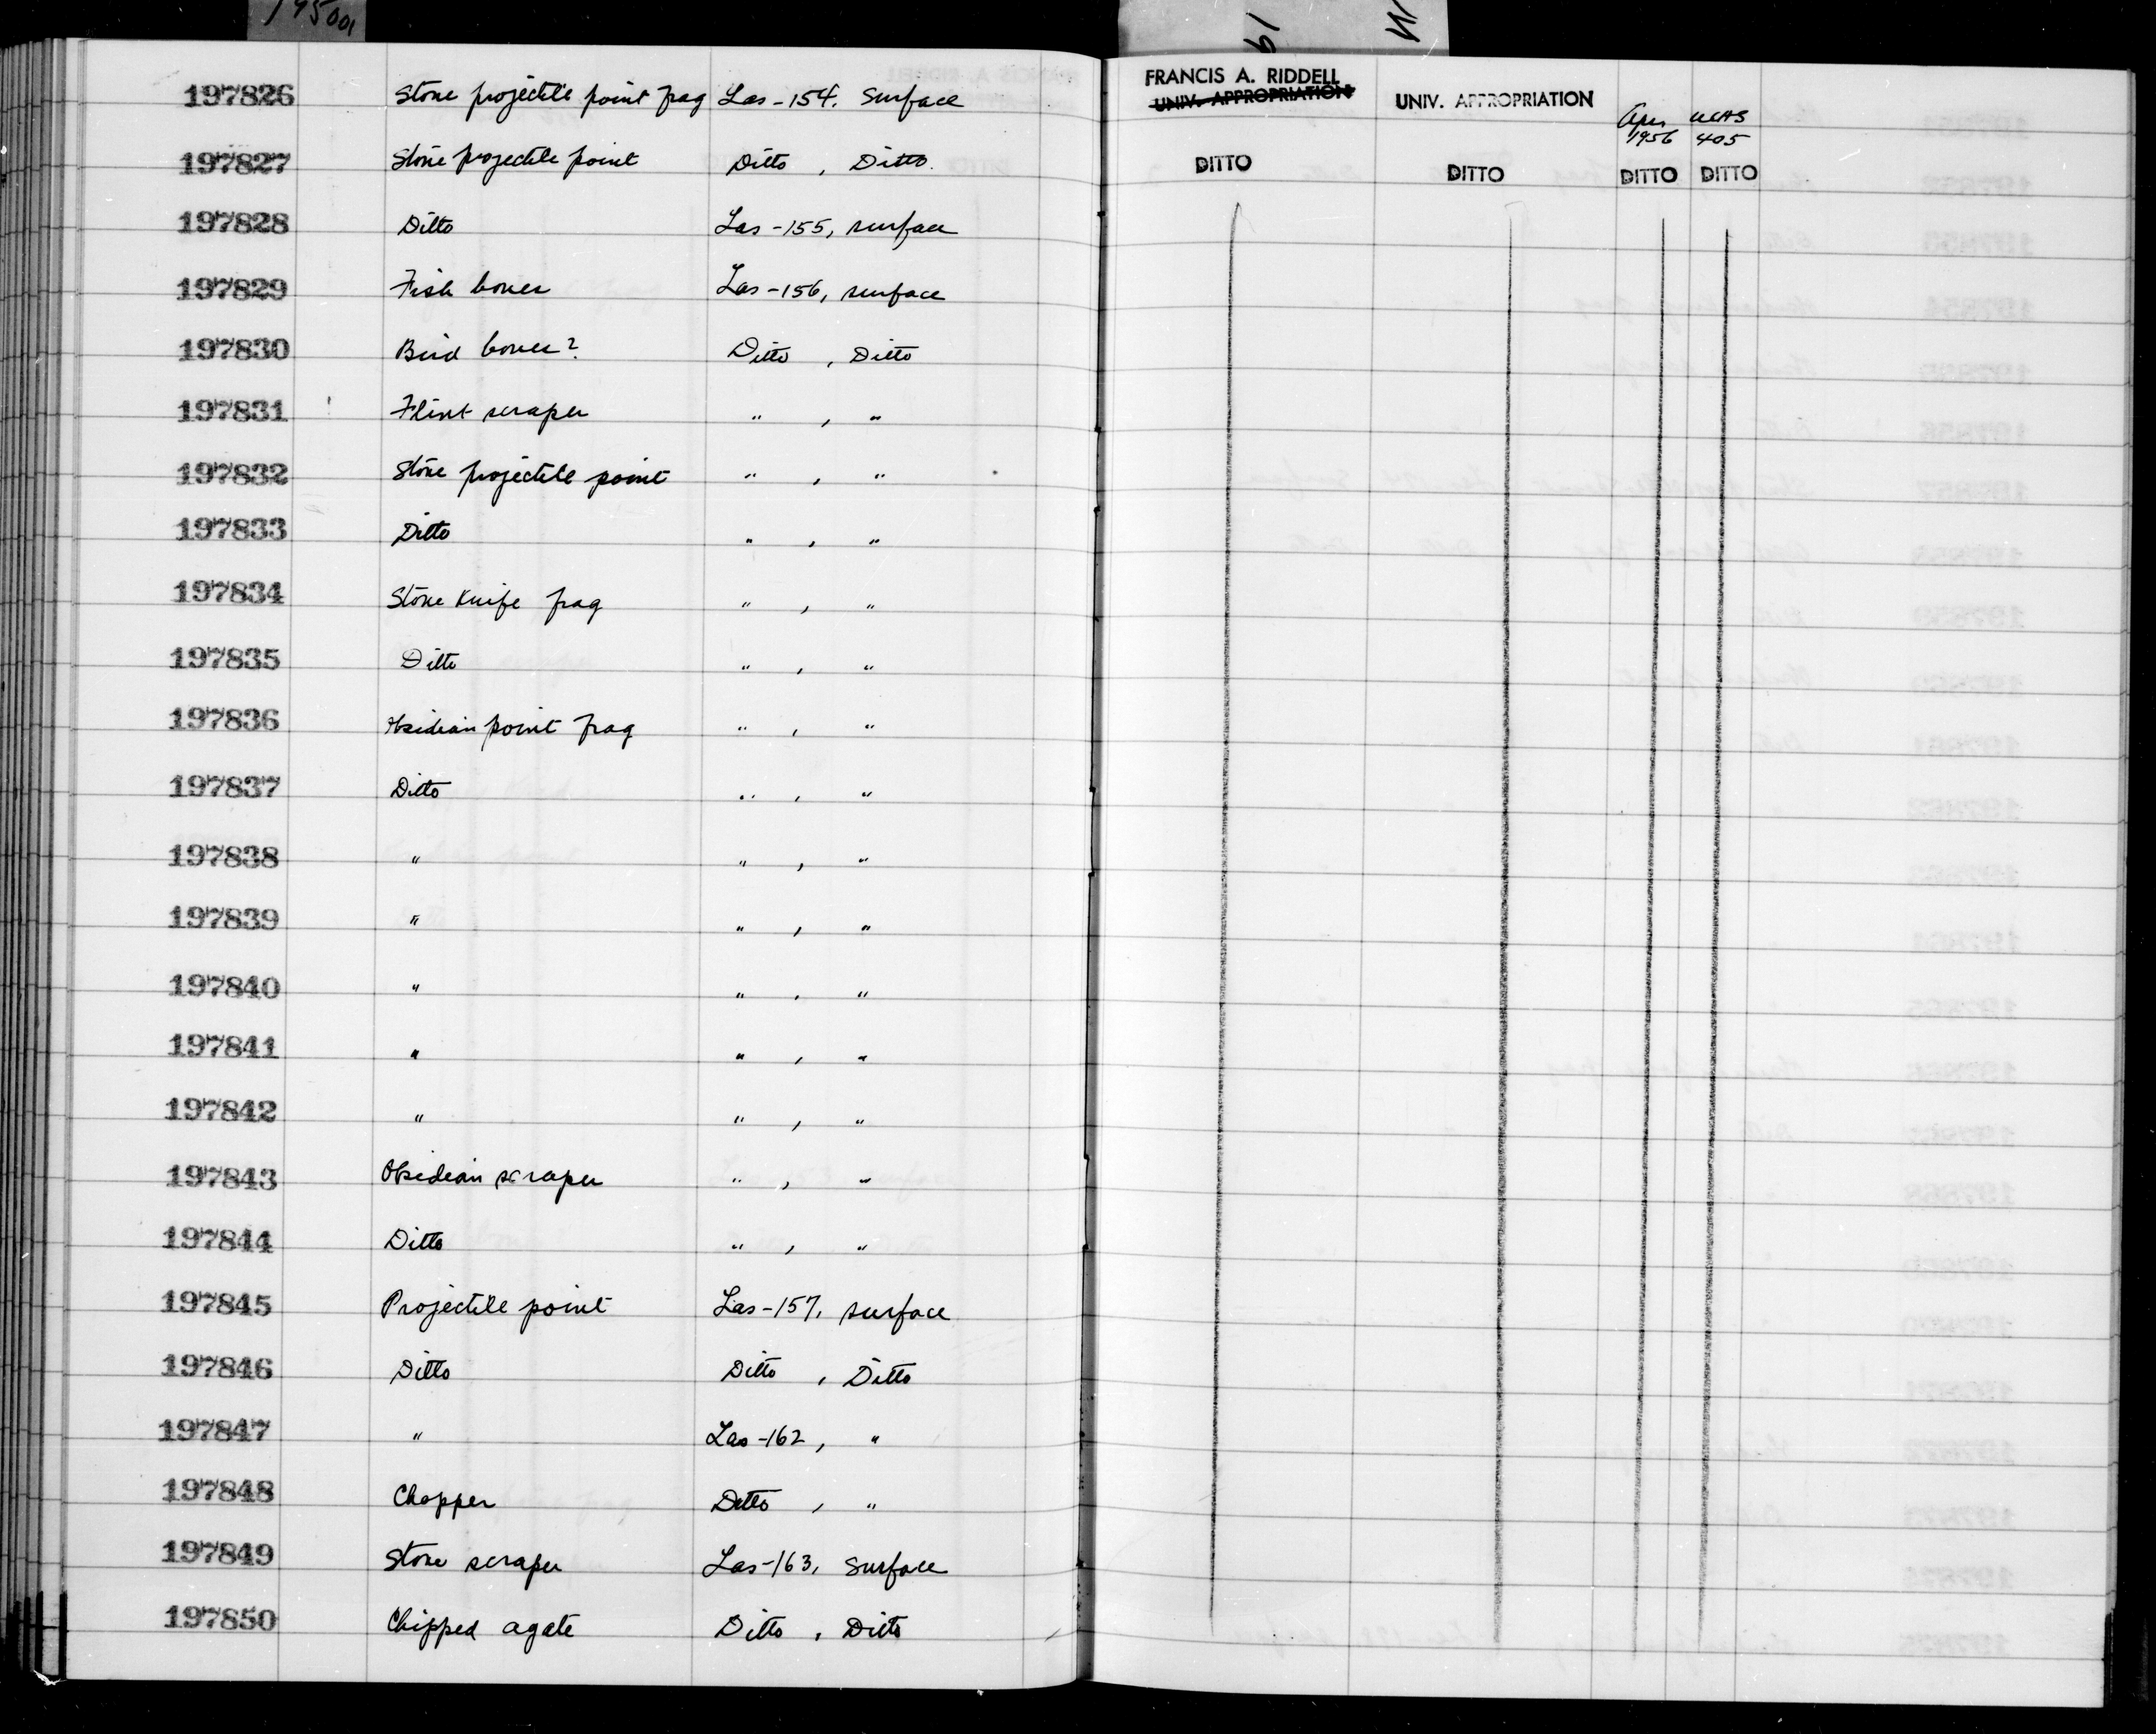 195001
19
197826 Stone projectile point frag Las-154, Surface FRANCIS A. RIDDELL UNIV. APPROPRIATION
UNIV. APPROPRIATION Apr 1956 UCAS 405
197827 Stone projectile point Ditto , Ditto. DITTO DITTO DITTO DITTO
197828 Ditto Las-155, surface
197829 Fish bones Las-156, surface
197830 Bird bones? Ditto , Ditto
197831 Flint scraper " , "
197832 Stone projectile point " , "
197833 Ditto " , "
197834 Stone Knife frag " , "
197835 Ditto " , "
197836 Obsidian point frag " , "
197837 Ditto " , "
197838 " " , "
197839 " " , "
197840 " " , "
197841 " " , "
197842 " " , "
197843 Obsidian scraper " , "
197844 Ditto " , "
197845 Projectile point Las-157, surface
197846 Ditto Ditto , Ditto
197847 " Las-162, "
197848 Chopper Ditto , "
197849 Stone scraper Las-163, Surface
197850 Chipped agate Ditto , Ditto